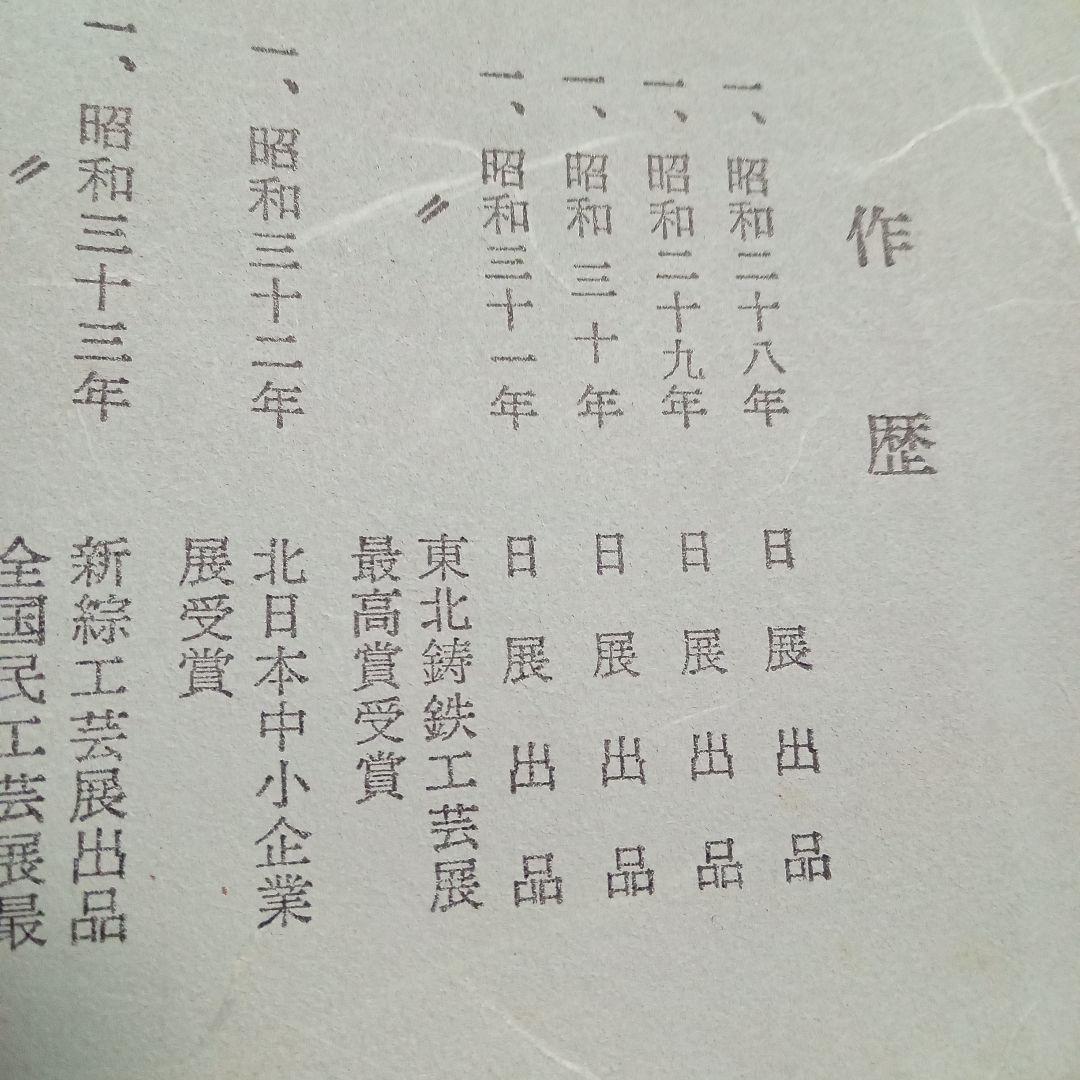 作歴
一、昭和二十八年 日展出品
一、昭和二十九年 日展出品
一、昭和三十年 日展出品
一、昭和三十一年 日展出品
〃 東北鋳鉄工芸展
最高賞受賞
一、昭和三十二年 北日本中小企業
展受賞
一、昭和三十三年 新綜工芸展出品
〃 全国民工芸展最